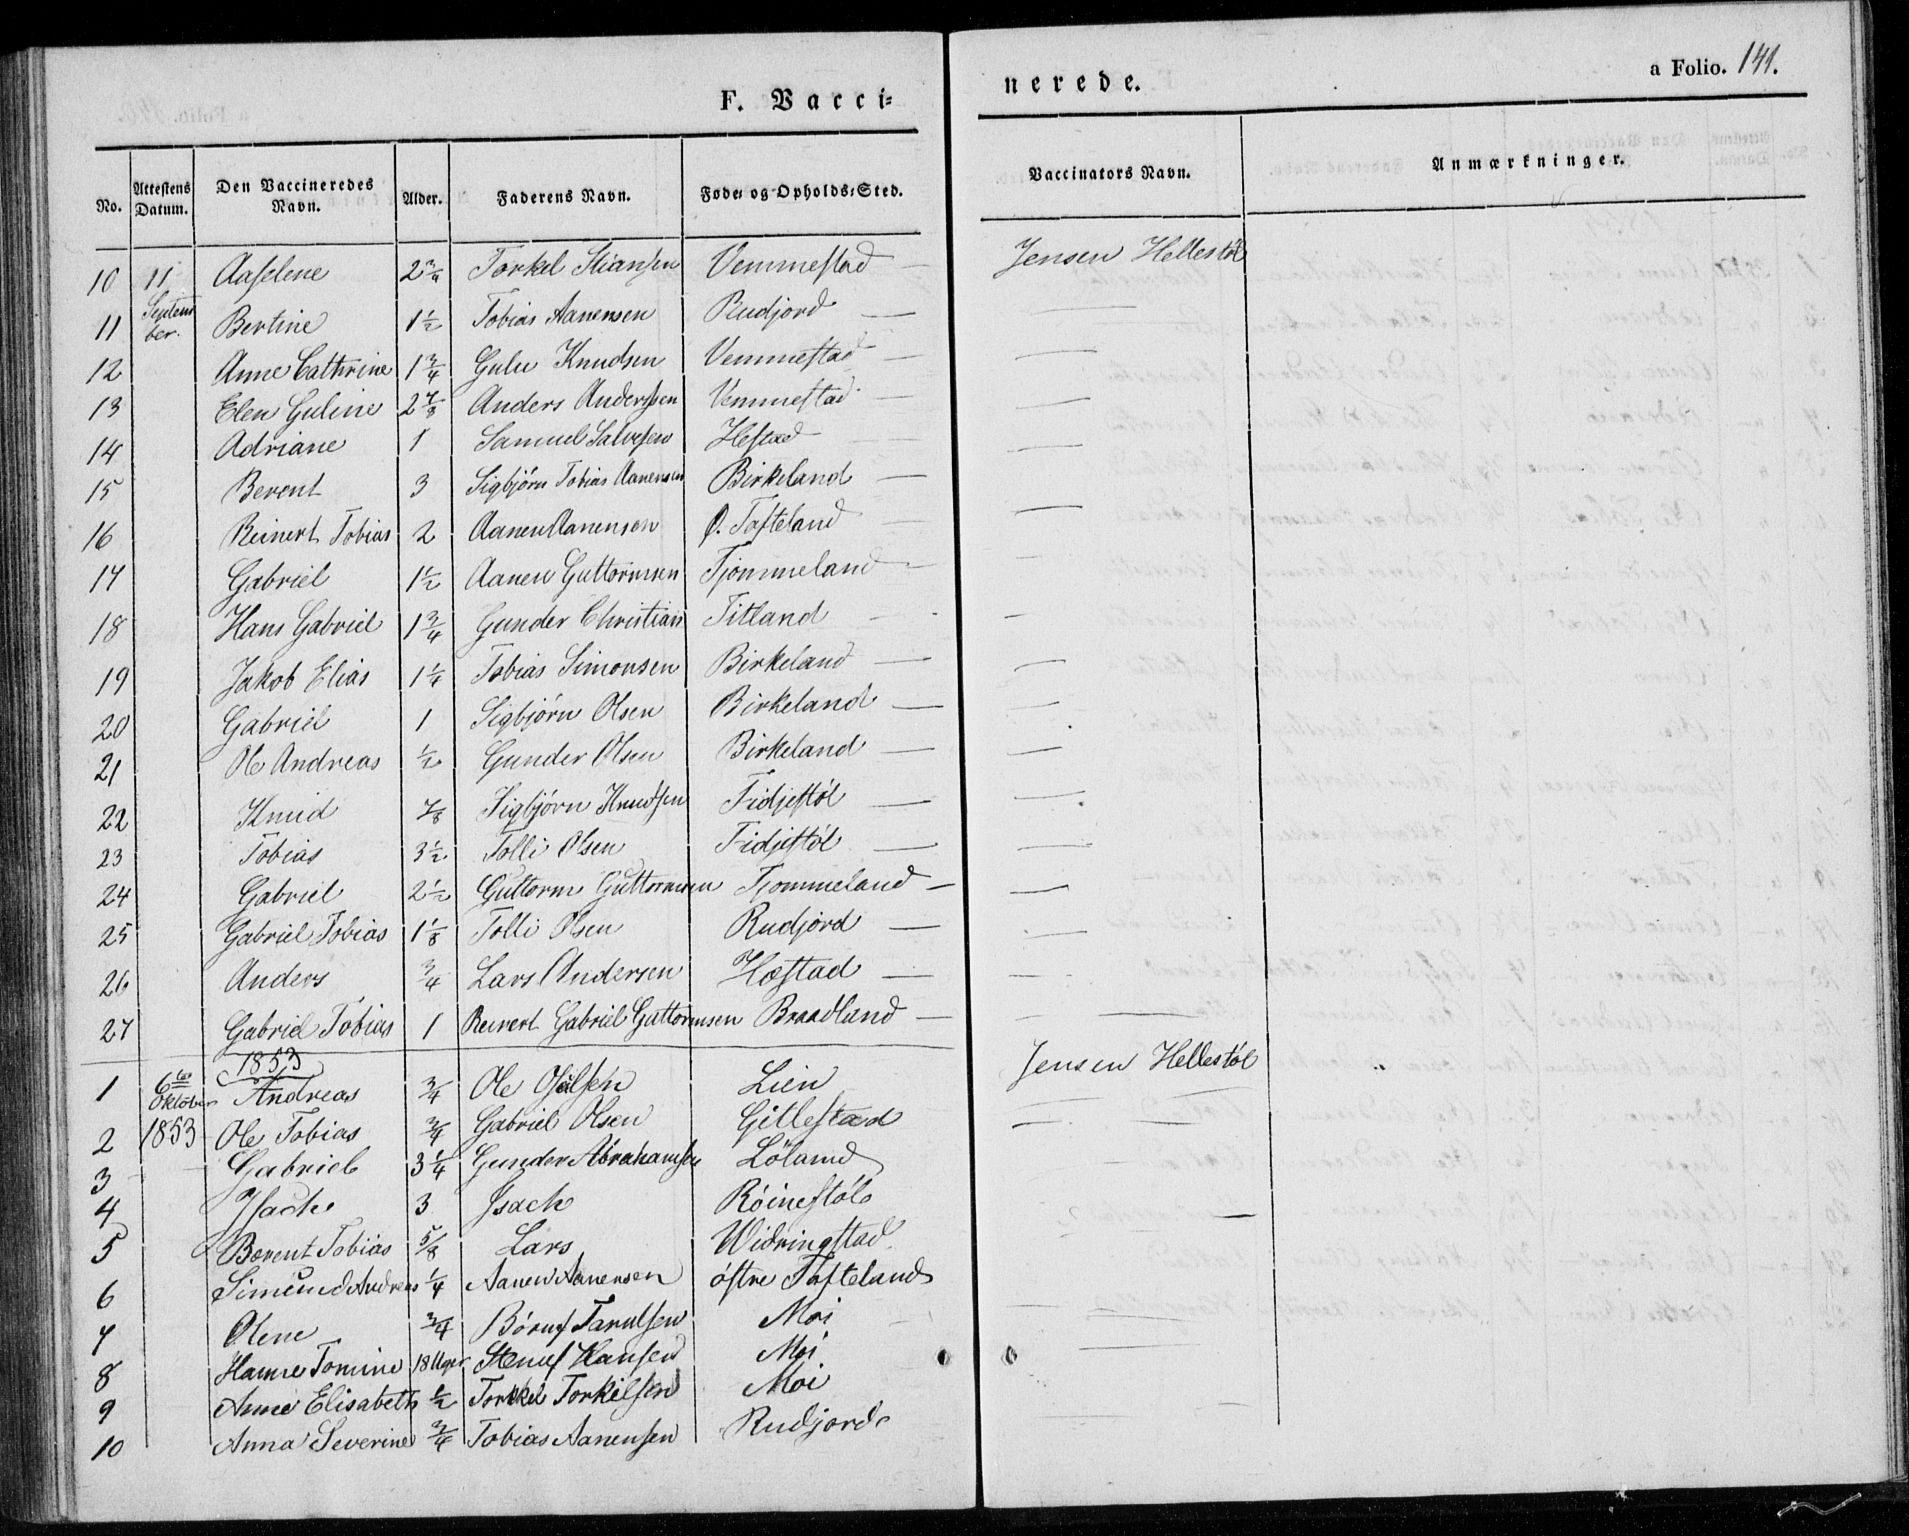 F. Vaccinerede.
a Folio. 141.
No. Attestens Datum. Den Vaccineredes Navn. Alder. Faderens Navn. Føde- og Opholds-Sted. Vaccinators Navn. Anmærkninger.
10 11 Aaselene 2 3/4 Torkel Stiansen Vemmestad — Jensen Hellestøl
11 September. Bertine 1 1/2 Tobias Aanensen Rudjord —
12 Anne Cathrine 1 3/4 Gulu Knudsen Vemmestad —
13 Elen Guline 2 7/8 Anders Anderssen Vemmestad —
14 Adriane 1 Samuel Salvesen Hestad
15 Berent 3 Sigbjörn Tobias Aanensen Birkeland —
16 Reinert Tobias 2 Aanen Aanensen Ø. Tafteland
17 Gabriel 1 1/2 Aanen Guttormsen Tjommeland —
18 Hans Gabriel 1 3/4 Gunder Christian Titland —
19 Jakob Elias 1 1/4 Tobias Simonsen Birkeland —
20 Gabriel 1 Sigbjörn Olsen Birkeland —
21 Ole Andreas 1/2 Gunder Olsen Birkeland —
22 Knud 7/8 Sigbjörn Knudsen Fidjestøl —
23 Tobias 3 1/2 Tolli Olsen Fidjestøl —
24 Gabriel 2 1/2 Guttorm Guttormsen Tjommeland —
25 Gabriel Tobias 1 1/8 Tolli Olsen Rudjord —
26 Anders 3/4 Lars Andersen Hæstad —
27 Gabriel Tobias 1 Reinert Gabriel Guttormsen Braadland —
1853
1 6te Oktober Andreas 3/4 Ole Lien Jensen Hellestøl
2 1853 Ole Tobias 3/4 Gabriel Olsen Gillestad
3 Gabriel 3 1/4 Gunder Abrahamsen Löland
4 Isach 3 Isach Röinestöl
5 Berent Tobias 5/8 Lars Widringstad
6 Simund Andreas 1/4 Aanen Aanensen östre Tafteland
7 Olene 3/4 Moi
8 Hanne Tomine 18 Uger Hansen Moi
9 Anne Elisabeth 1/2 Torkel Torkelsen Moi
10 Anna Severine 3/4 Tobias Aanensen Rudjord